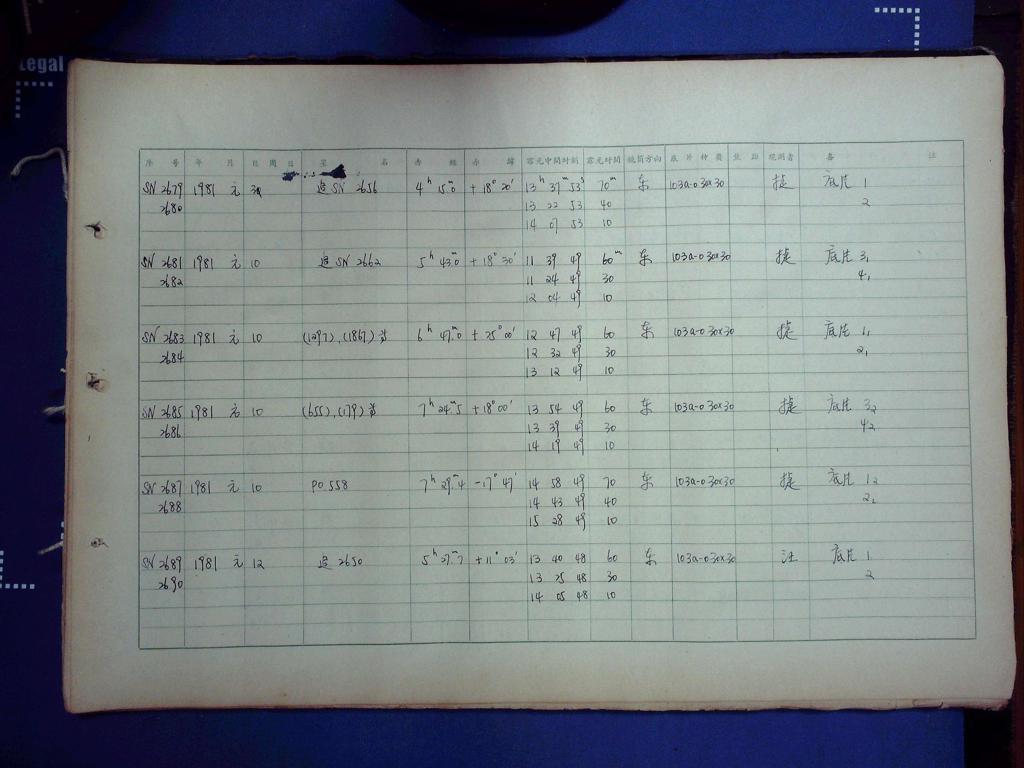 Legal
序 号 年 月 日 周日 星 名 赤 經 赤 緯 露光中間时刻 露光时间 鏡筒方向 底片种类 观測者 备 註
SN 2679 1981 元 追 SN 2656 4h 15m.0 +18° 20′ 13h 37m 53s 70m 东 103a-0 30x30 捷 底片 1
2680 13 22 53 40 2
14 07 53 10
SN 2681 1981 元 10 追 SN 2662 5h 43m.0 +18° 30′ 11 39 49 60m 东 103a-0 30x30 捷 底片 31
2682 11 24 49 30 41
12 04 49 10
SN 2683 1981 元 10 (1297), (1867) 等 6h 47m.0 +25° 00′ 12 47 49 60 东 103a-0 30x30 捷 底片 11
2684 12 32 49 30 21
13 12 49 10
SN 2685 1981 元 10 (655), (179) 等 7h 24m.5 +18° 00′ 13 54 49 60 东 103a-0 30x30 捷 底片 32
2686 13 39 49 30 42
14 19 49 10
SN 2687 1981 元 10 PO 558 7h 29m.4 -17° 47′ 14 58 49 70 东 103a-0 30x30 捷 底片 12
2688 14 43 49 40 22
15 28 49 10
SN 2689 1981 元 12 追 2650 5h 27m.7 +11° 03′ 13 40 48 60 东 103a-0 30x30 汪 底片 1
2690 13 25 48 30 2
14 05 48 10